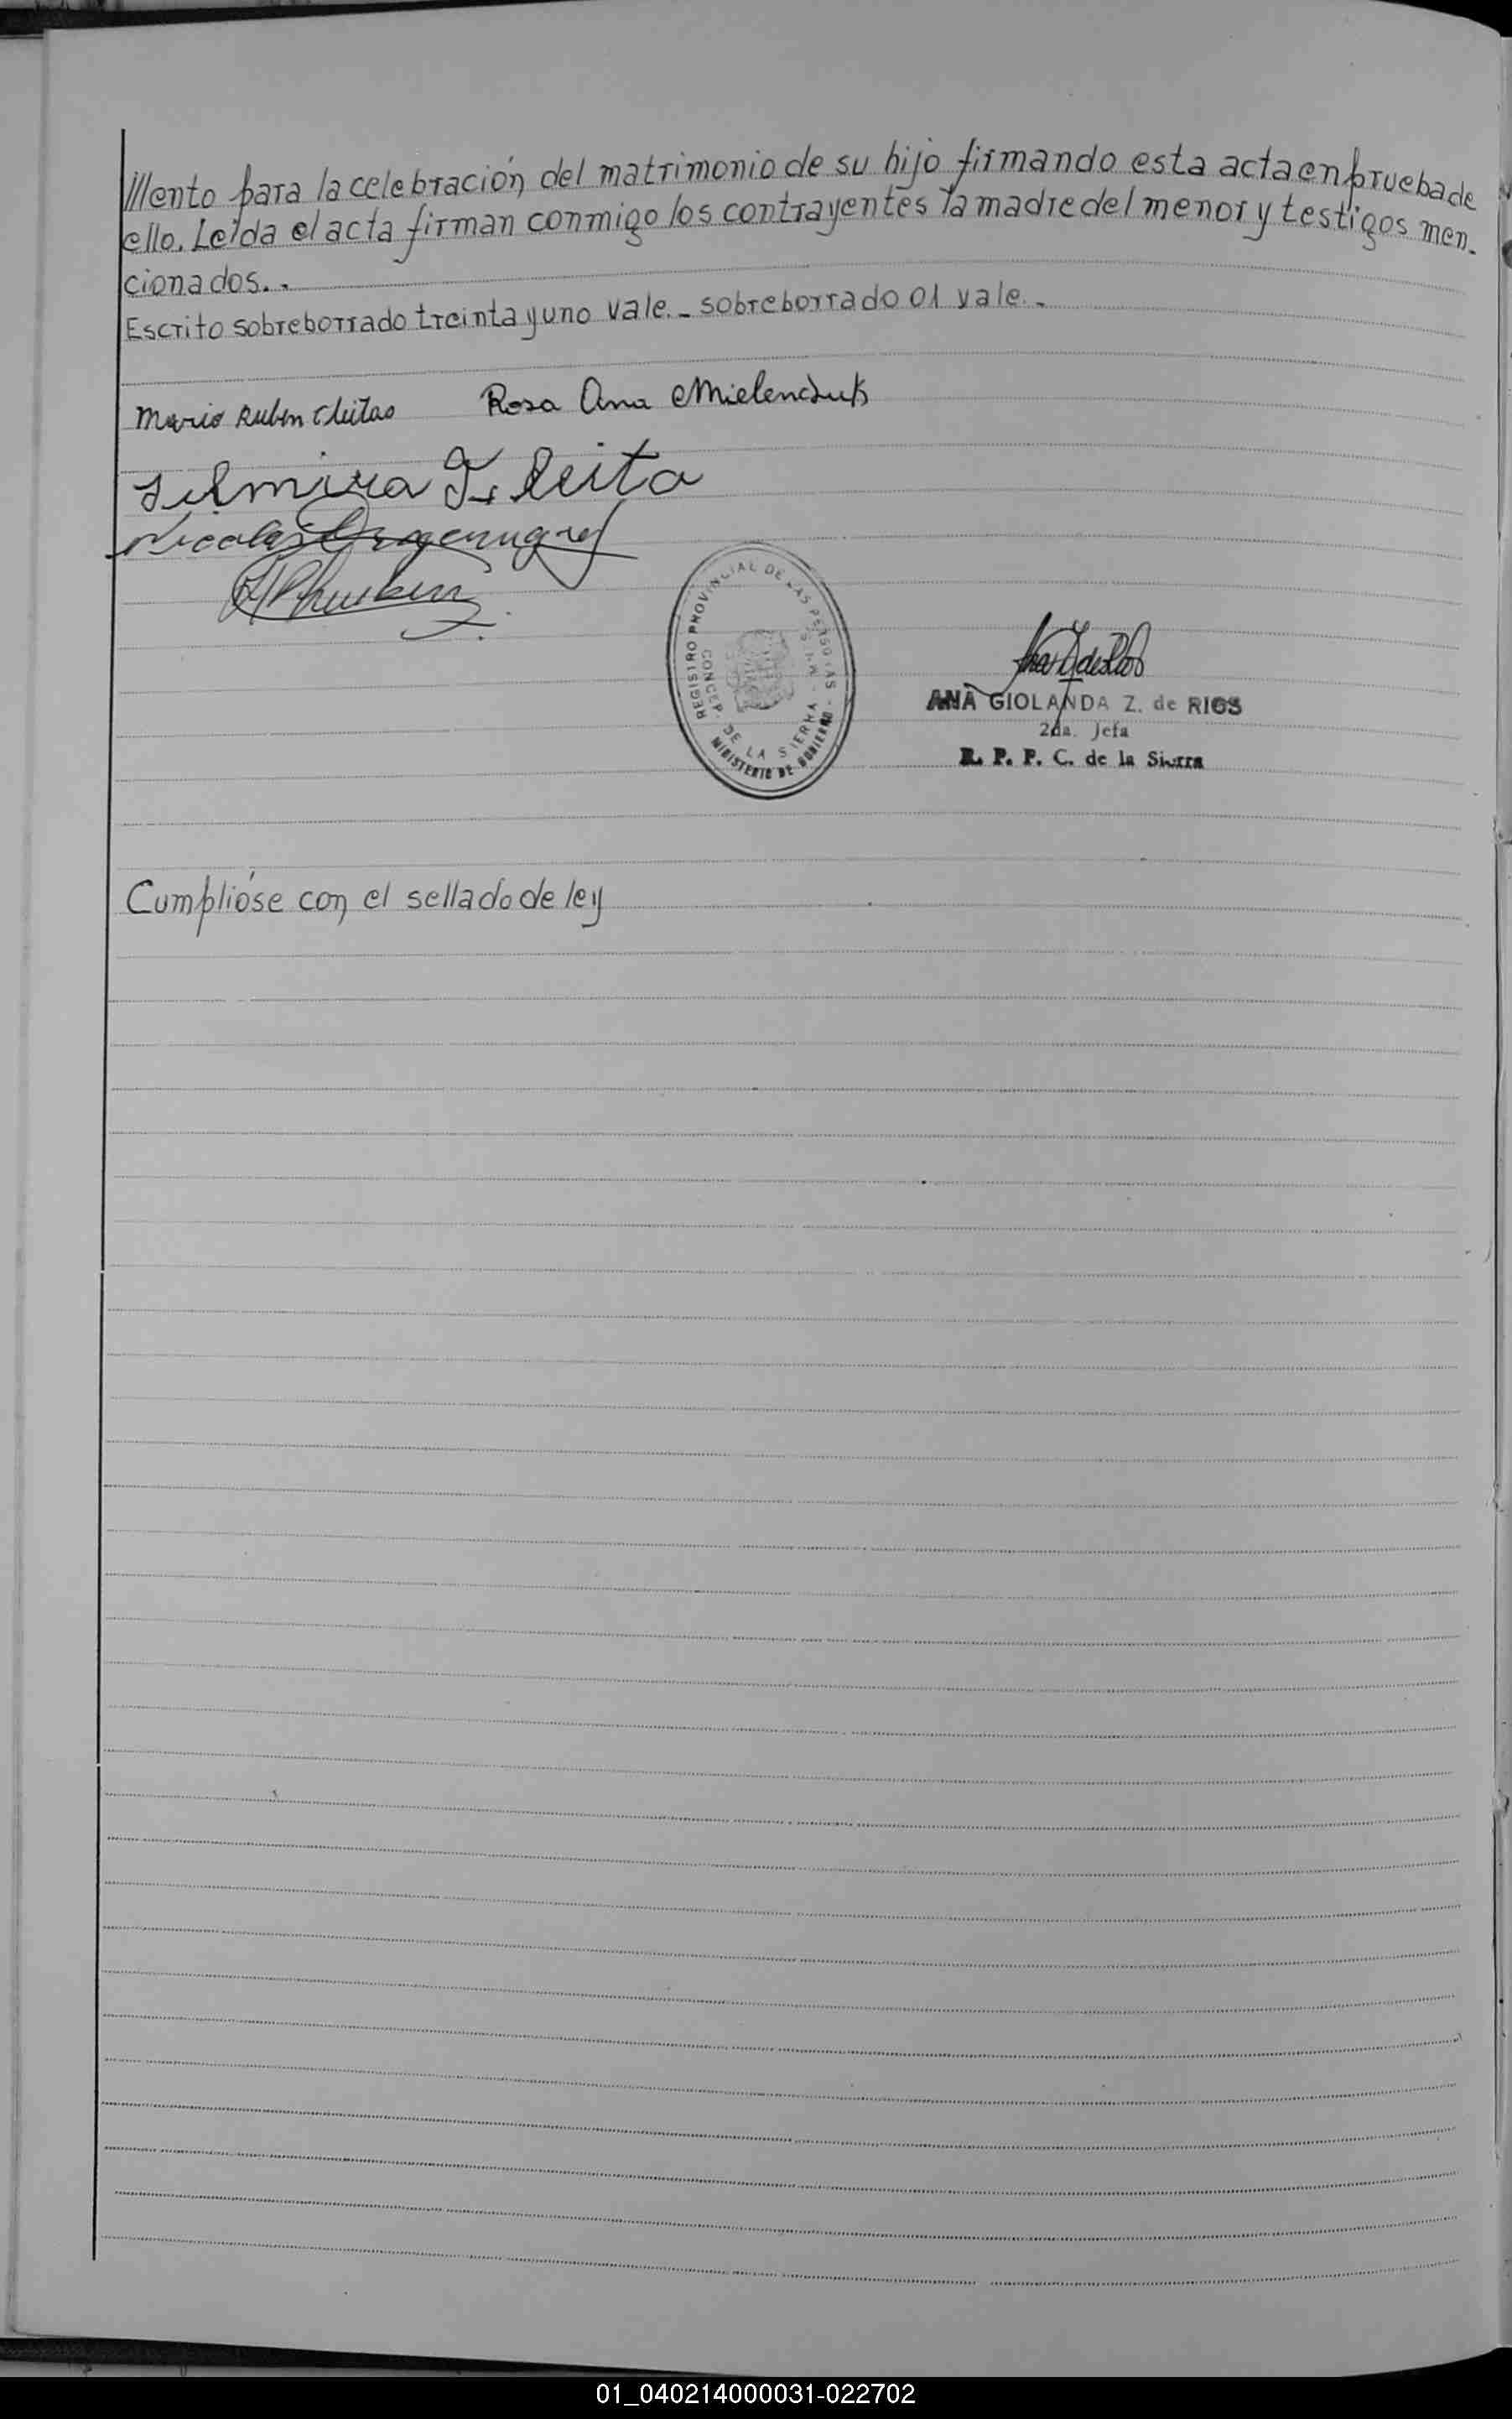 mento para la celebración del matrimonio de su hijo firmando esta acta en prueba de
ello. Leída el acta firman conmigo los contrayentes la madre del menor y testigos men-
cionados.-
Escrito sobreborrado treinta y uno vale.- sobreborrado 01 vale.-
Mario Ruben Rosa Ana Mielenczuk
Nicolas
REGISTRO PROVINCIAL DE LAS PERSONAS - MINISTERIO DE GOBIERNO -
CONCEP. DE LA SIERRA - MNES.
ANA GIOLANDA Z. de RIOS
2da. Jefa
R. P. P. C. de la Sierra
Cumplióse con el sellado de ley
01_040214000031-022702